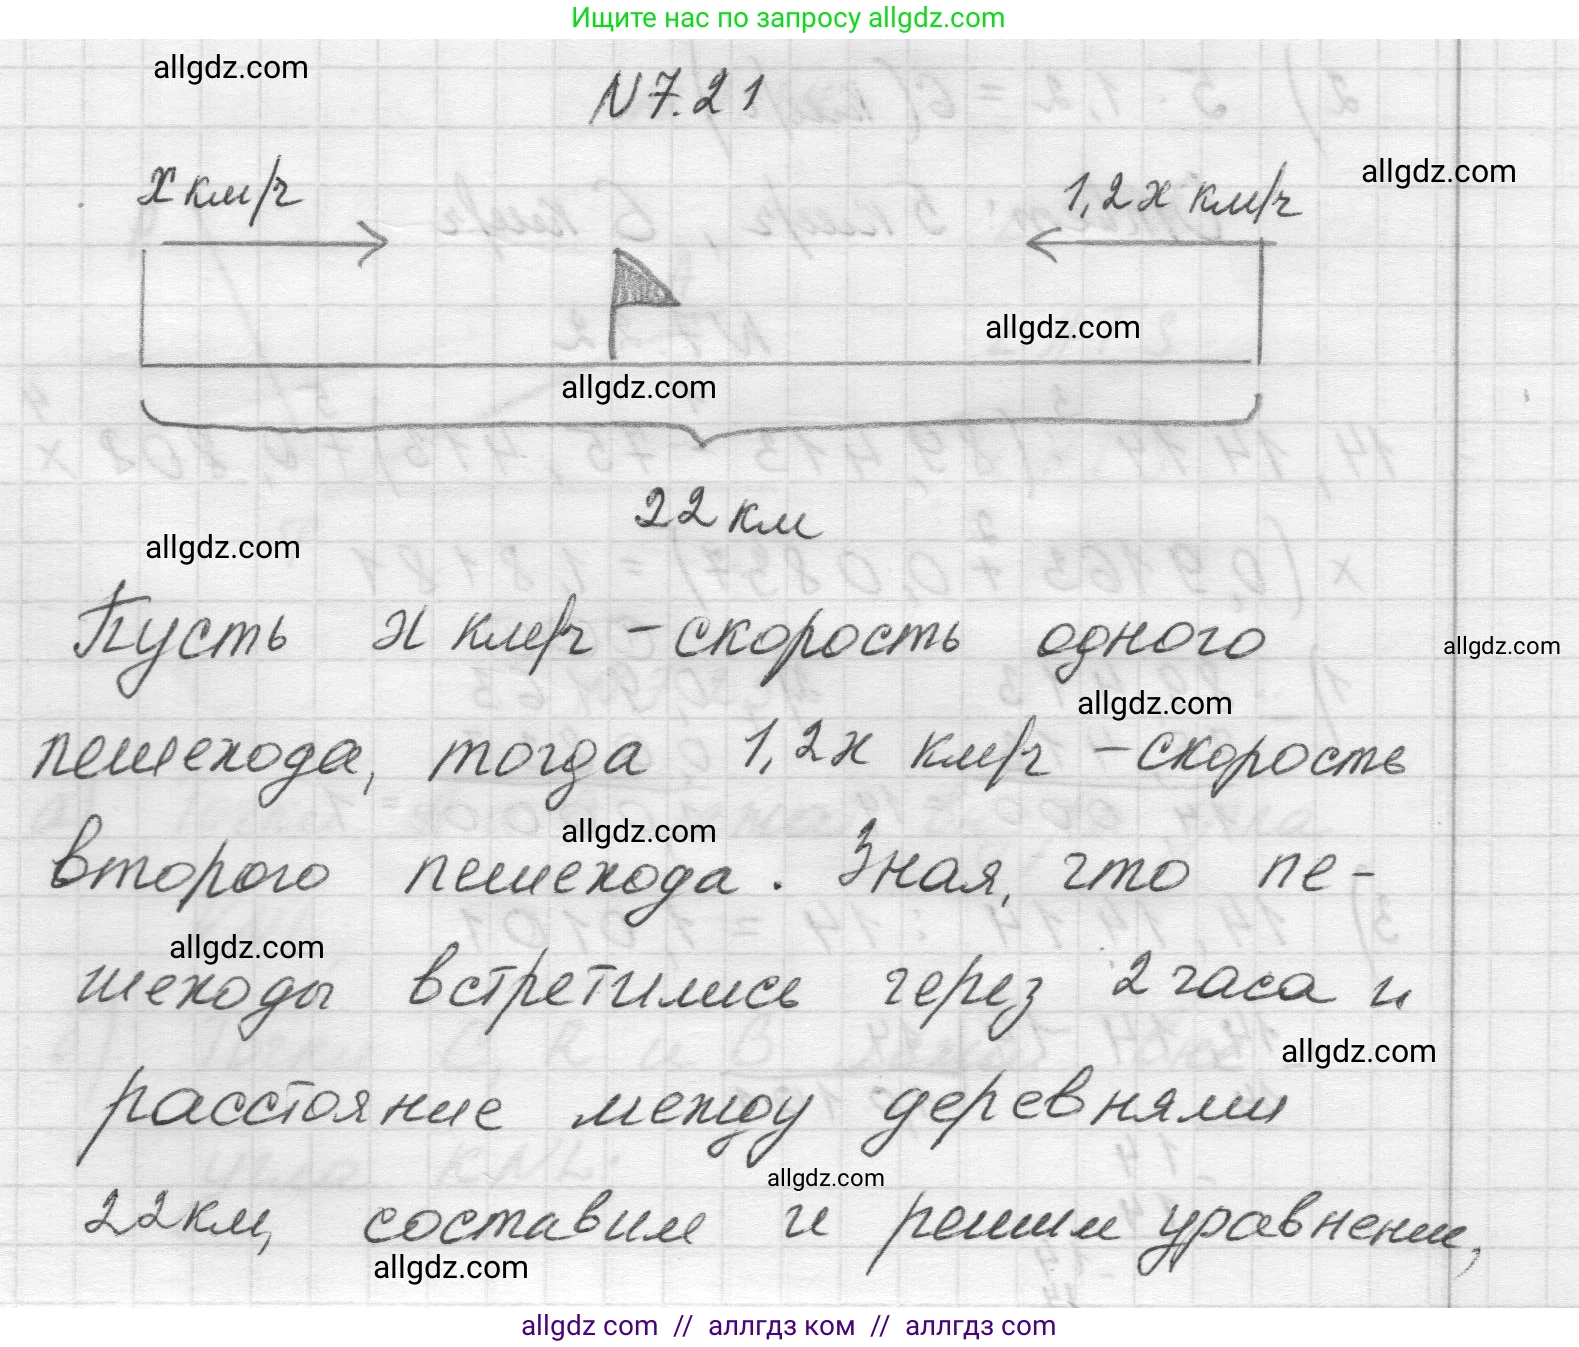 Ищите нас по запросу allgdz.com
allgdz.com
N7.21
x км/ч
1,2x км/ч
allgdz.com
allgdz.com
allgdz.com
22 км
allgdz.com
Пусть x км/ч – скорость одного
allgdz.com
allgdz.com
пешехода, тогда 1,2x км/ч – скорость
allgdz.com
второго пешехода. Зная, что пе-
allgdz.com
шеходы встретились через 2 часа и
allgdz.com
расстояние между деревнями
allgdz.com
22км, составим и решим уравнение,
allgdz.com
allgdz com // аллгдз ком // аллгдз com